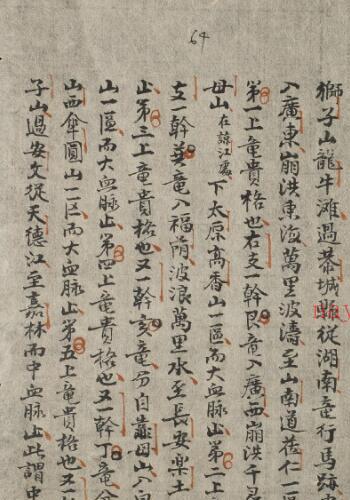 64
獅子山龍牛灘過恭城縣從湖南竜行馬跡
入廣東崩洪東海萬里波濤至山南道蓬仁一
第一上竜貴格也右支一幹艮竜入廣西崩洪千
母山在諒江處下太原高香山一區而大血脉止第二上
支一幹巽竜入福蔭波浪萬里水至長安樂土
止第三上竜貴格也又一幹亥竜分自靠母山入
山一區而大血脉止第四上竜貴格也又一幹丁竜分
山西傘圓山一区而大血脉止第五上竜貴格也又一
子山過安文從天德江至嘉林而中血脉止此謂中